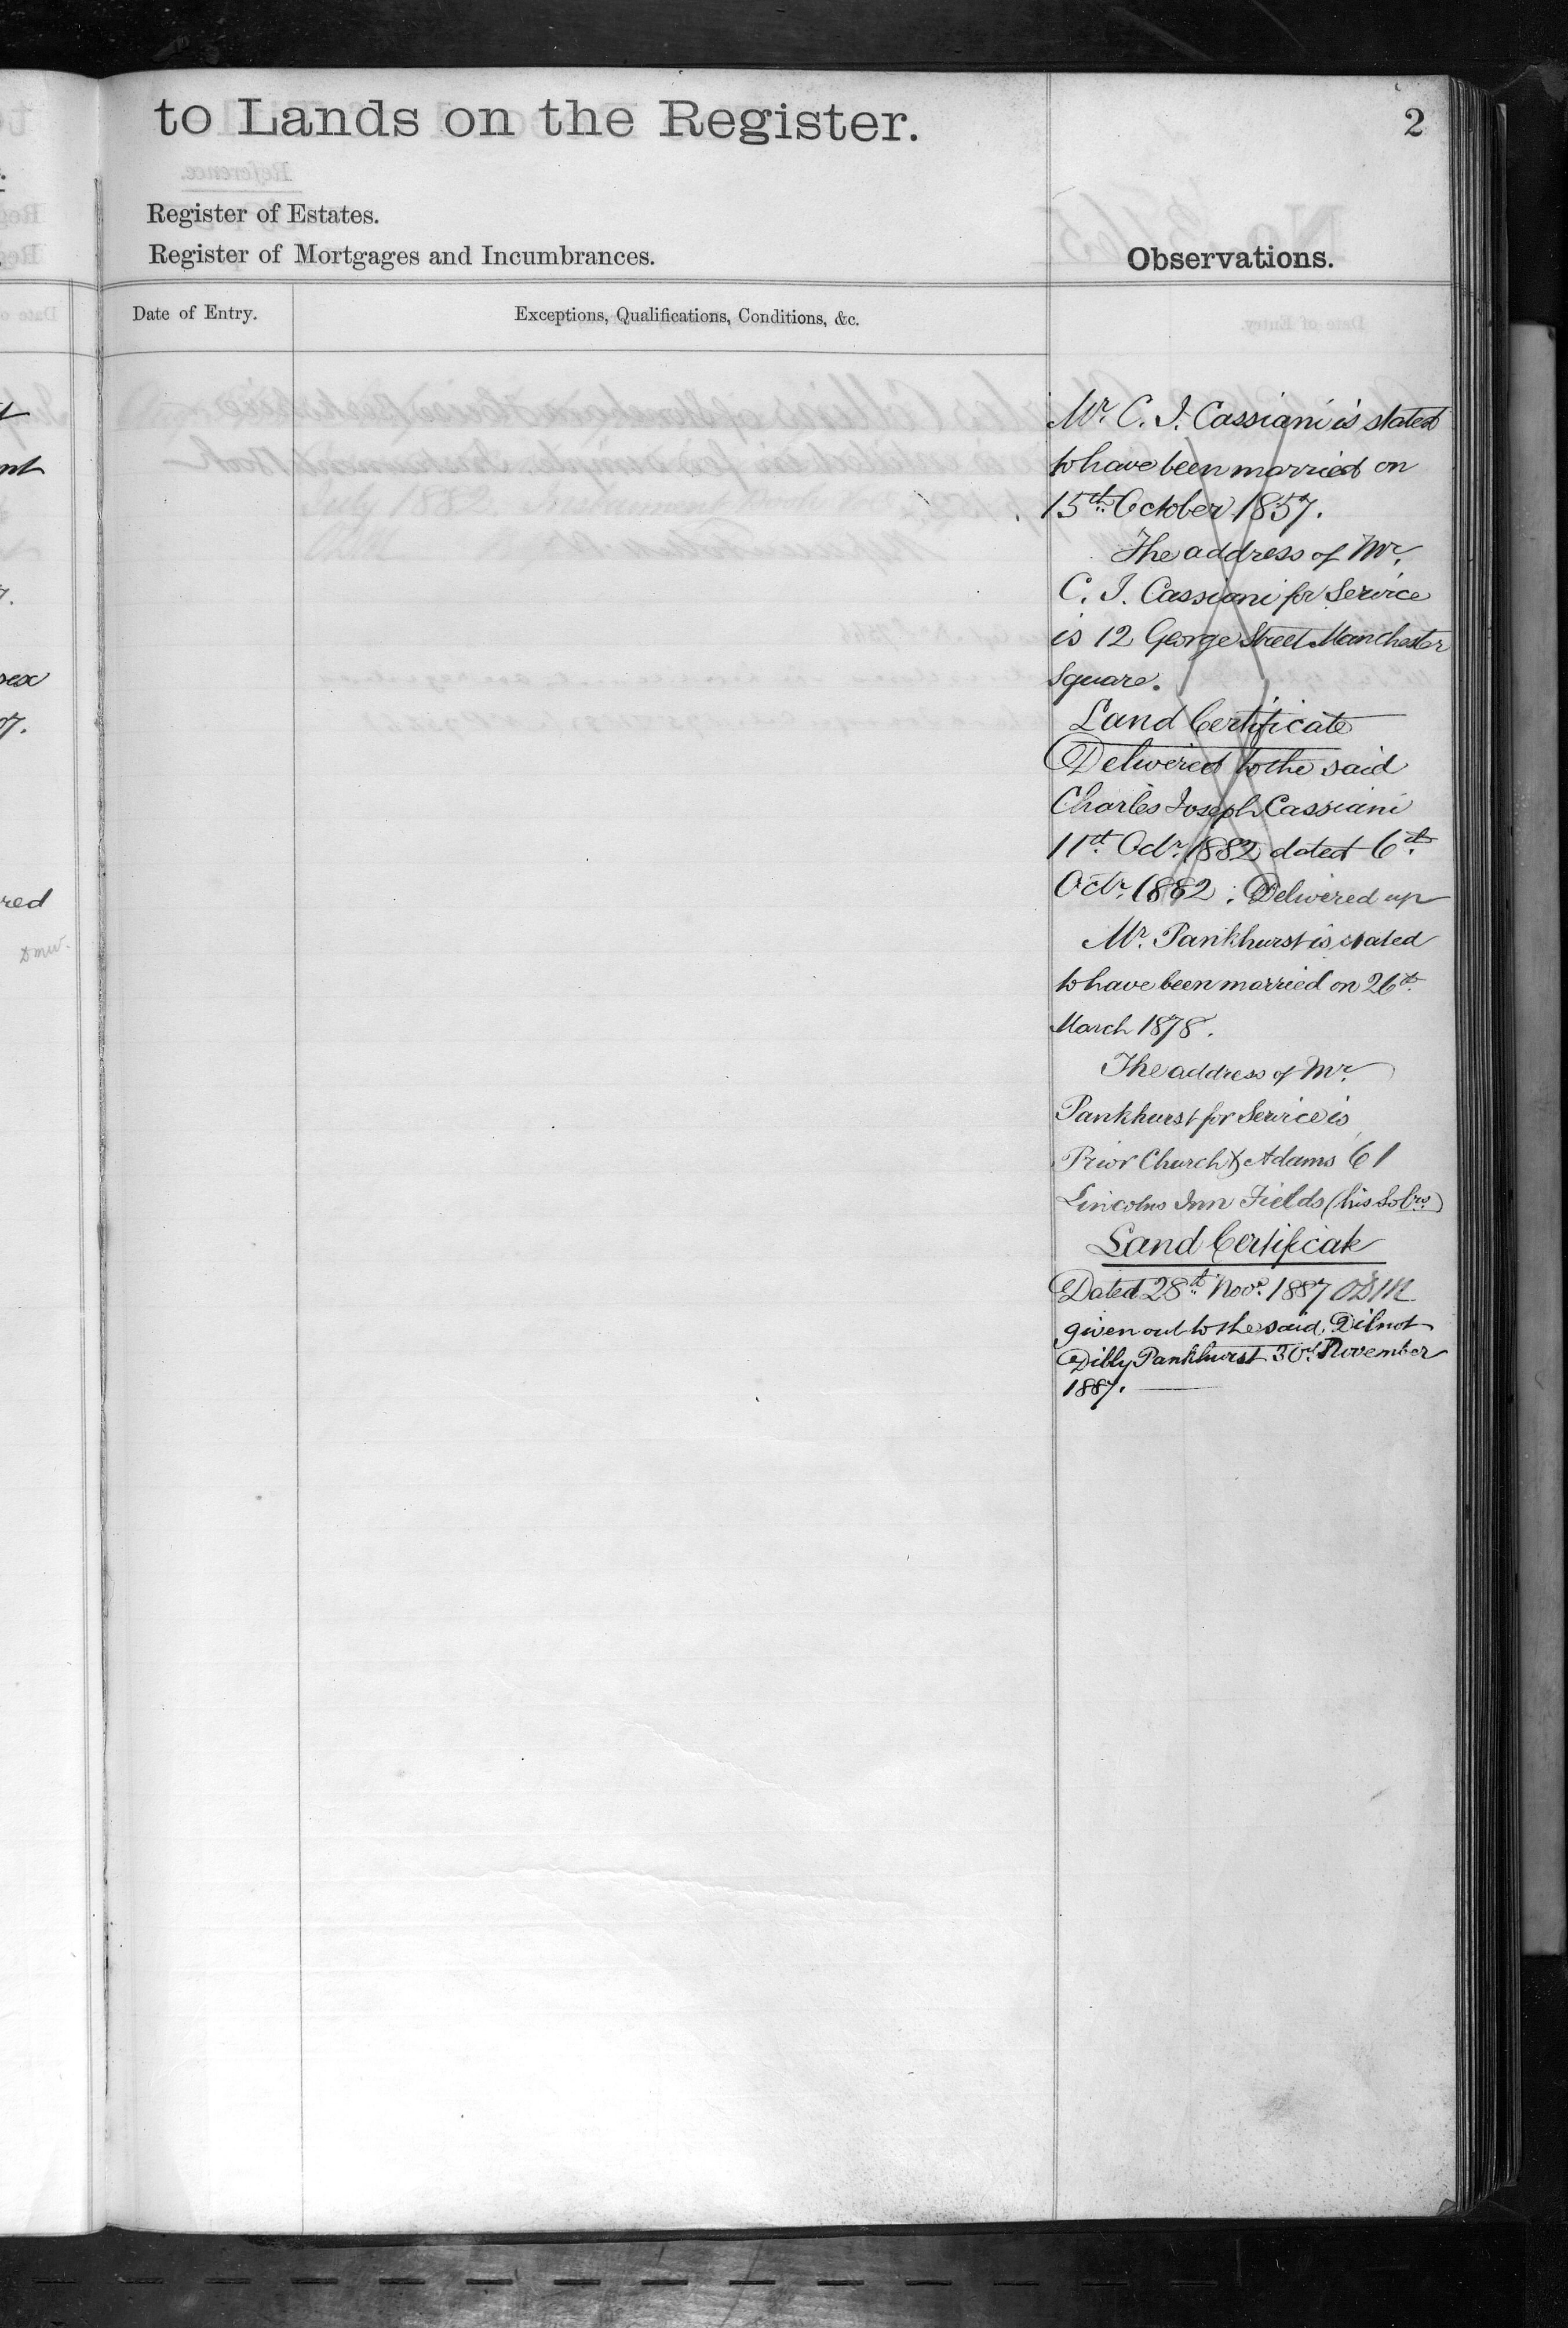 to Lands on the Register.
2
Register of Estates.
Register of Mortgages and Incumbrances.
Observations.
Date of Entry.
Exceptions, Qualifications, Conditions, &c.
Mr. C. J. Cassiani is stated
to have been married on
15th October 1857.
The address of Mr.
C. J. Cassiani for Service
is 12 George Street Manchester
Square.
Land Certificate
Delivered to the said
Charles Joseph Cassiani
11th Octr. 1882 dated 6th
Octr. 1882. Delivered up
Mr. Pankhurst is stated
to have been married on 26th
March 1878.
The address of Mr.
Pankhurst for Service is
Prior Church & Adams 61
Lincolns Inn Fields (his Solrs.)
Land Certificate
Dated 28th Novr. 1887 ODM
given out to the said Dilnot
Dibly Pankhurst 30th November
1887.